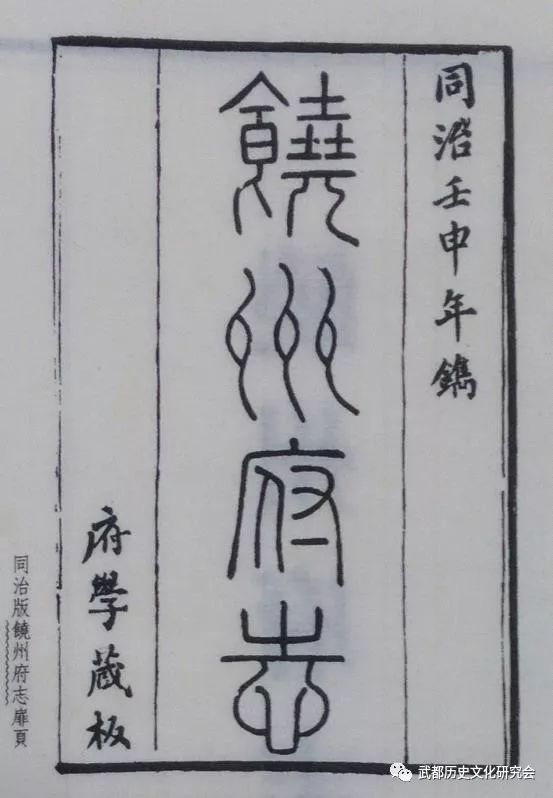 同治壬申年鐫
饒州府志
府學藏板
同治版饒州府志扉頁
武都历史文化研究会